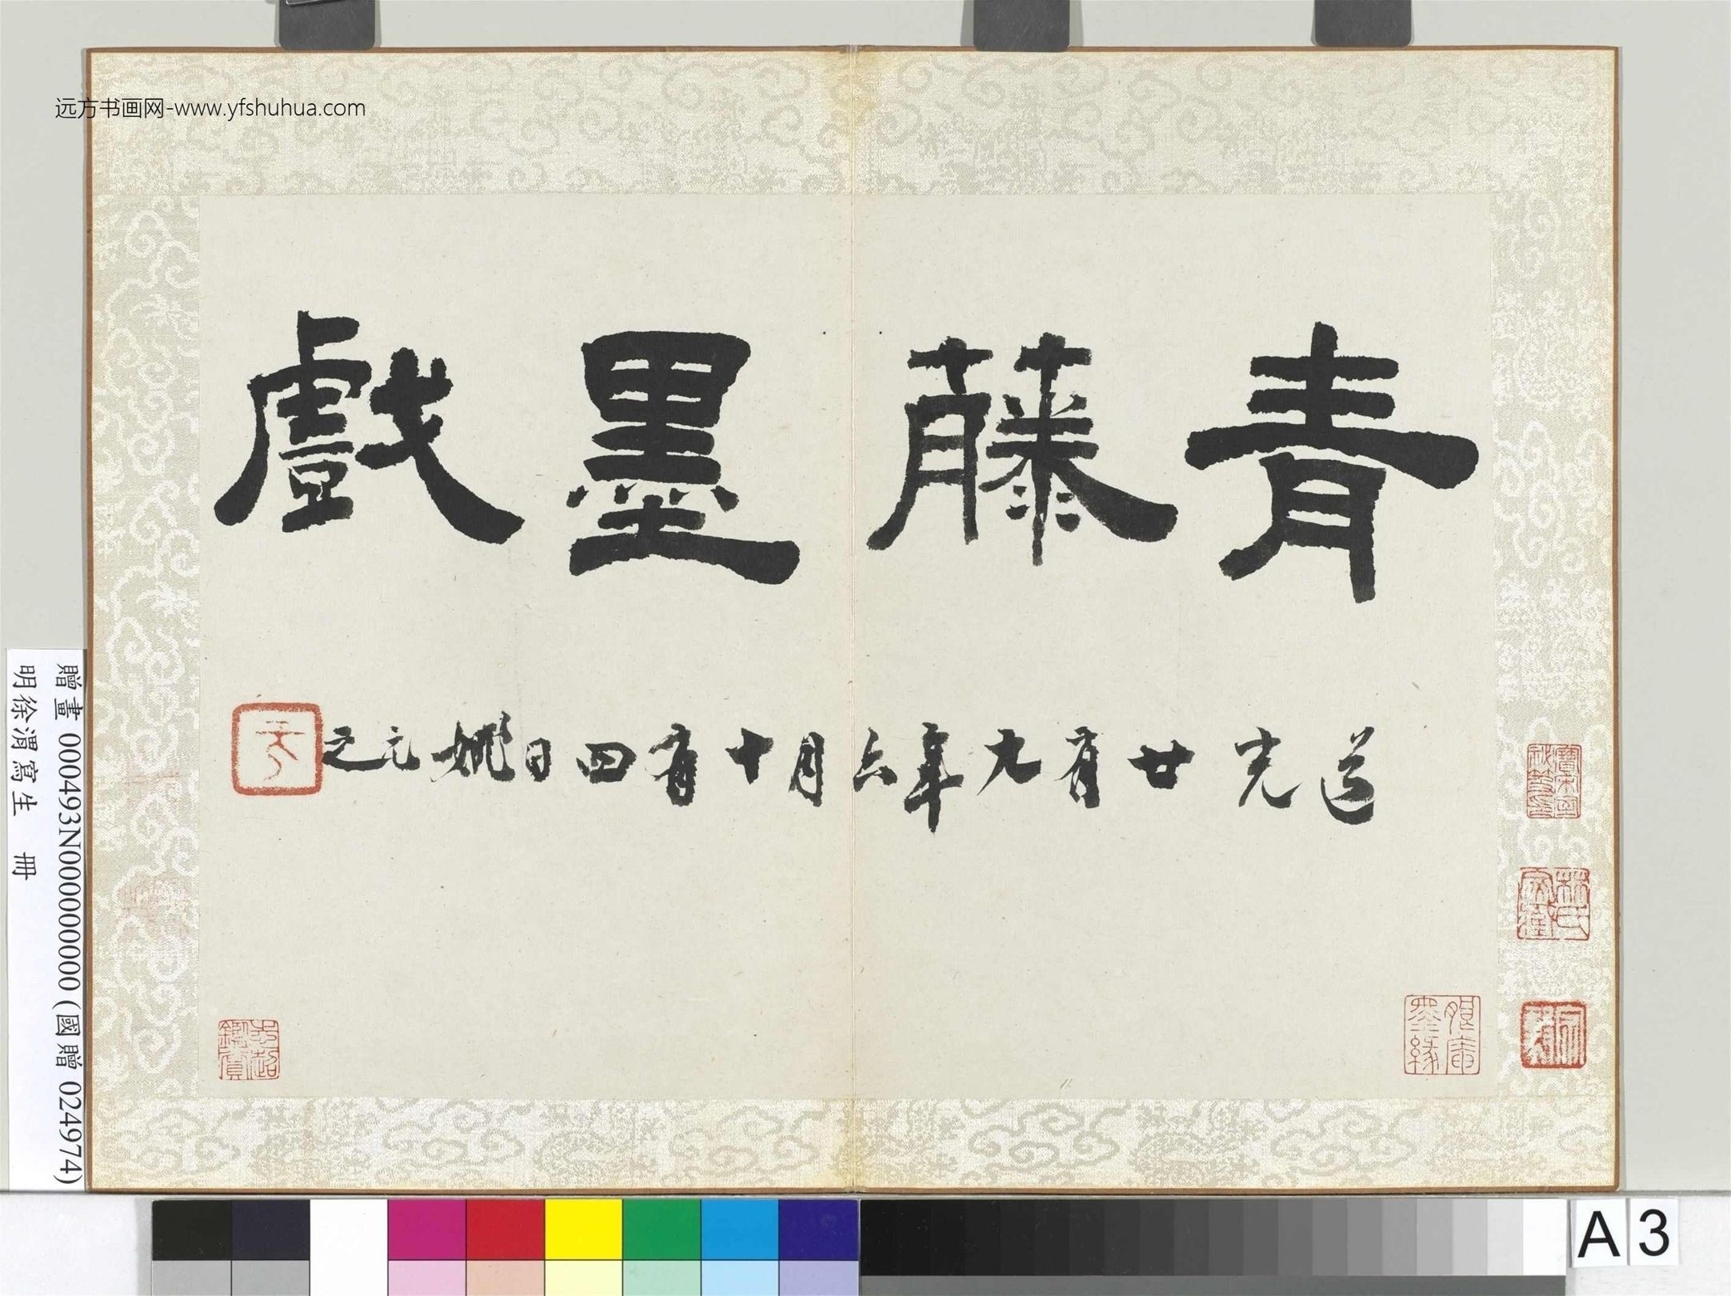 远方书画网-www.yfshuhua.com
青藤墨戲
道光廿有九年六月十有四日姚元之
元之
贈畫 000493N000000000 (國贈 024974)
明徐渭寫生 冊
A 3